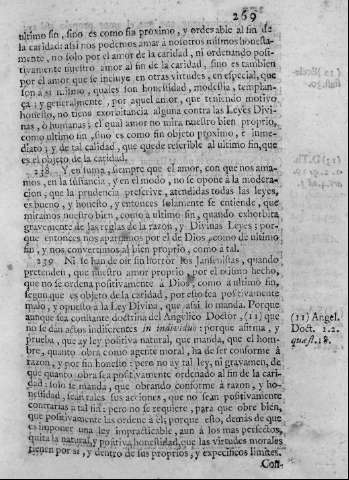 269
ultimo fin, sino es como fin proximo, y ordenable al fin de
la caridad: asi nos podemos amar à nosotros mismos honesta-
mente, no solo por el amor de la caridad, ni ordenando posi-
tivamente nuestro amor al fin de la caridad, sino es tambien
por el amor que se incluye en otras virtudes, en especial, que
son à sì mismo, quales son honestidad, modestia, templan-
ça; y generalmente, por aquel amor, que teniendo motivo
honesto, no tiene exorbitancia alguna contra las Leyes Divi-
nas, ò humanas; el qual amor no mira nuestro bien proprio,
como ultimo fin, sino es como fin objeto proximo, e inme-
diato; y de tal calidad, que quede referible al ultimo fin, que
es el objeto de la caridad.
238 Y en suma, siempre que el amor, con que nos ama-
mos, en la sustancia, y en el modo, no se opone à la modera-
cion, que la prudencia prescrive, atendidas todas las leyes,
es bueno, y honesto, y entonces solamente se entiende, que
miramos nuestro bien, como à ultimo fin, quando exhorbita
gravemente de las reglas de la razon, y Divinas Leyes; por-
que entonces nos apartamos por el de Dios, como de ultimo
fin, y nos convertimos al bien proprio, como à tal.
239 Ni se han de oir sin horror los Jansenistas, quando
pretenden, que nuestro amor proprio, por el mismo hecho,
que no se ordena positivamente à Dios, como à ultimo fin,
segun que es objeto de la caridad, por esto sea positivamente
malo, y opuesto à la Ley Divina, que assi lo manda. Porque
aunque sea constante doctrina del Angelico Doctor, (11) que
no se dan actos indiferentes in individuo: porque afirma, y
prueba, que ay ley positiva natural, que manda, que el hom-
bre, quanto obra como agente moral, ha de ser conforme à
razon, y por fin honesto: pero no ay tal ley, ni gravamen, de
que quanto obra sea positivamente ordenado al fin de la cari-
dad: solo se manda, que obrando conforme à razon, y ho-
nestidad, sean tales sus acciones, que no sean positivamente
contrarias à tal fin: pero no se requiere, para que obre bien,
que positivamente las ordene à èl; porque esto, demás de que
es imponer una ley impracticable, aun à los mas perfectos,
quita la natural, y positiva honestidad, que las virtudes morales
tienen por sì, y dentro de sus proprios, y especificos limites.
Con-
(11) Angel.
Doct. 1.2.
quæst. 18.